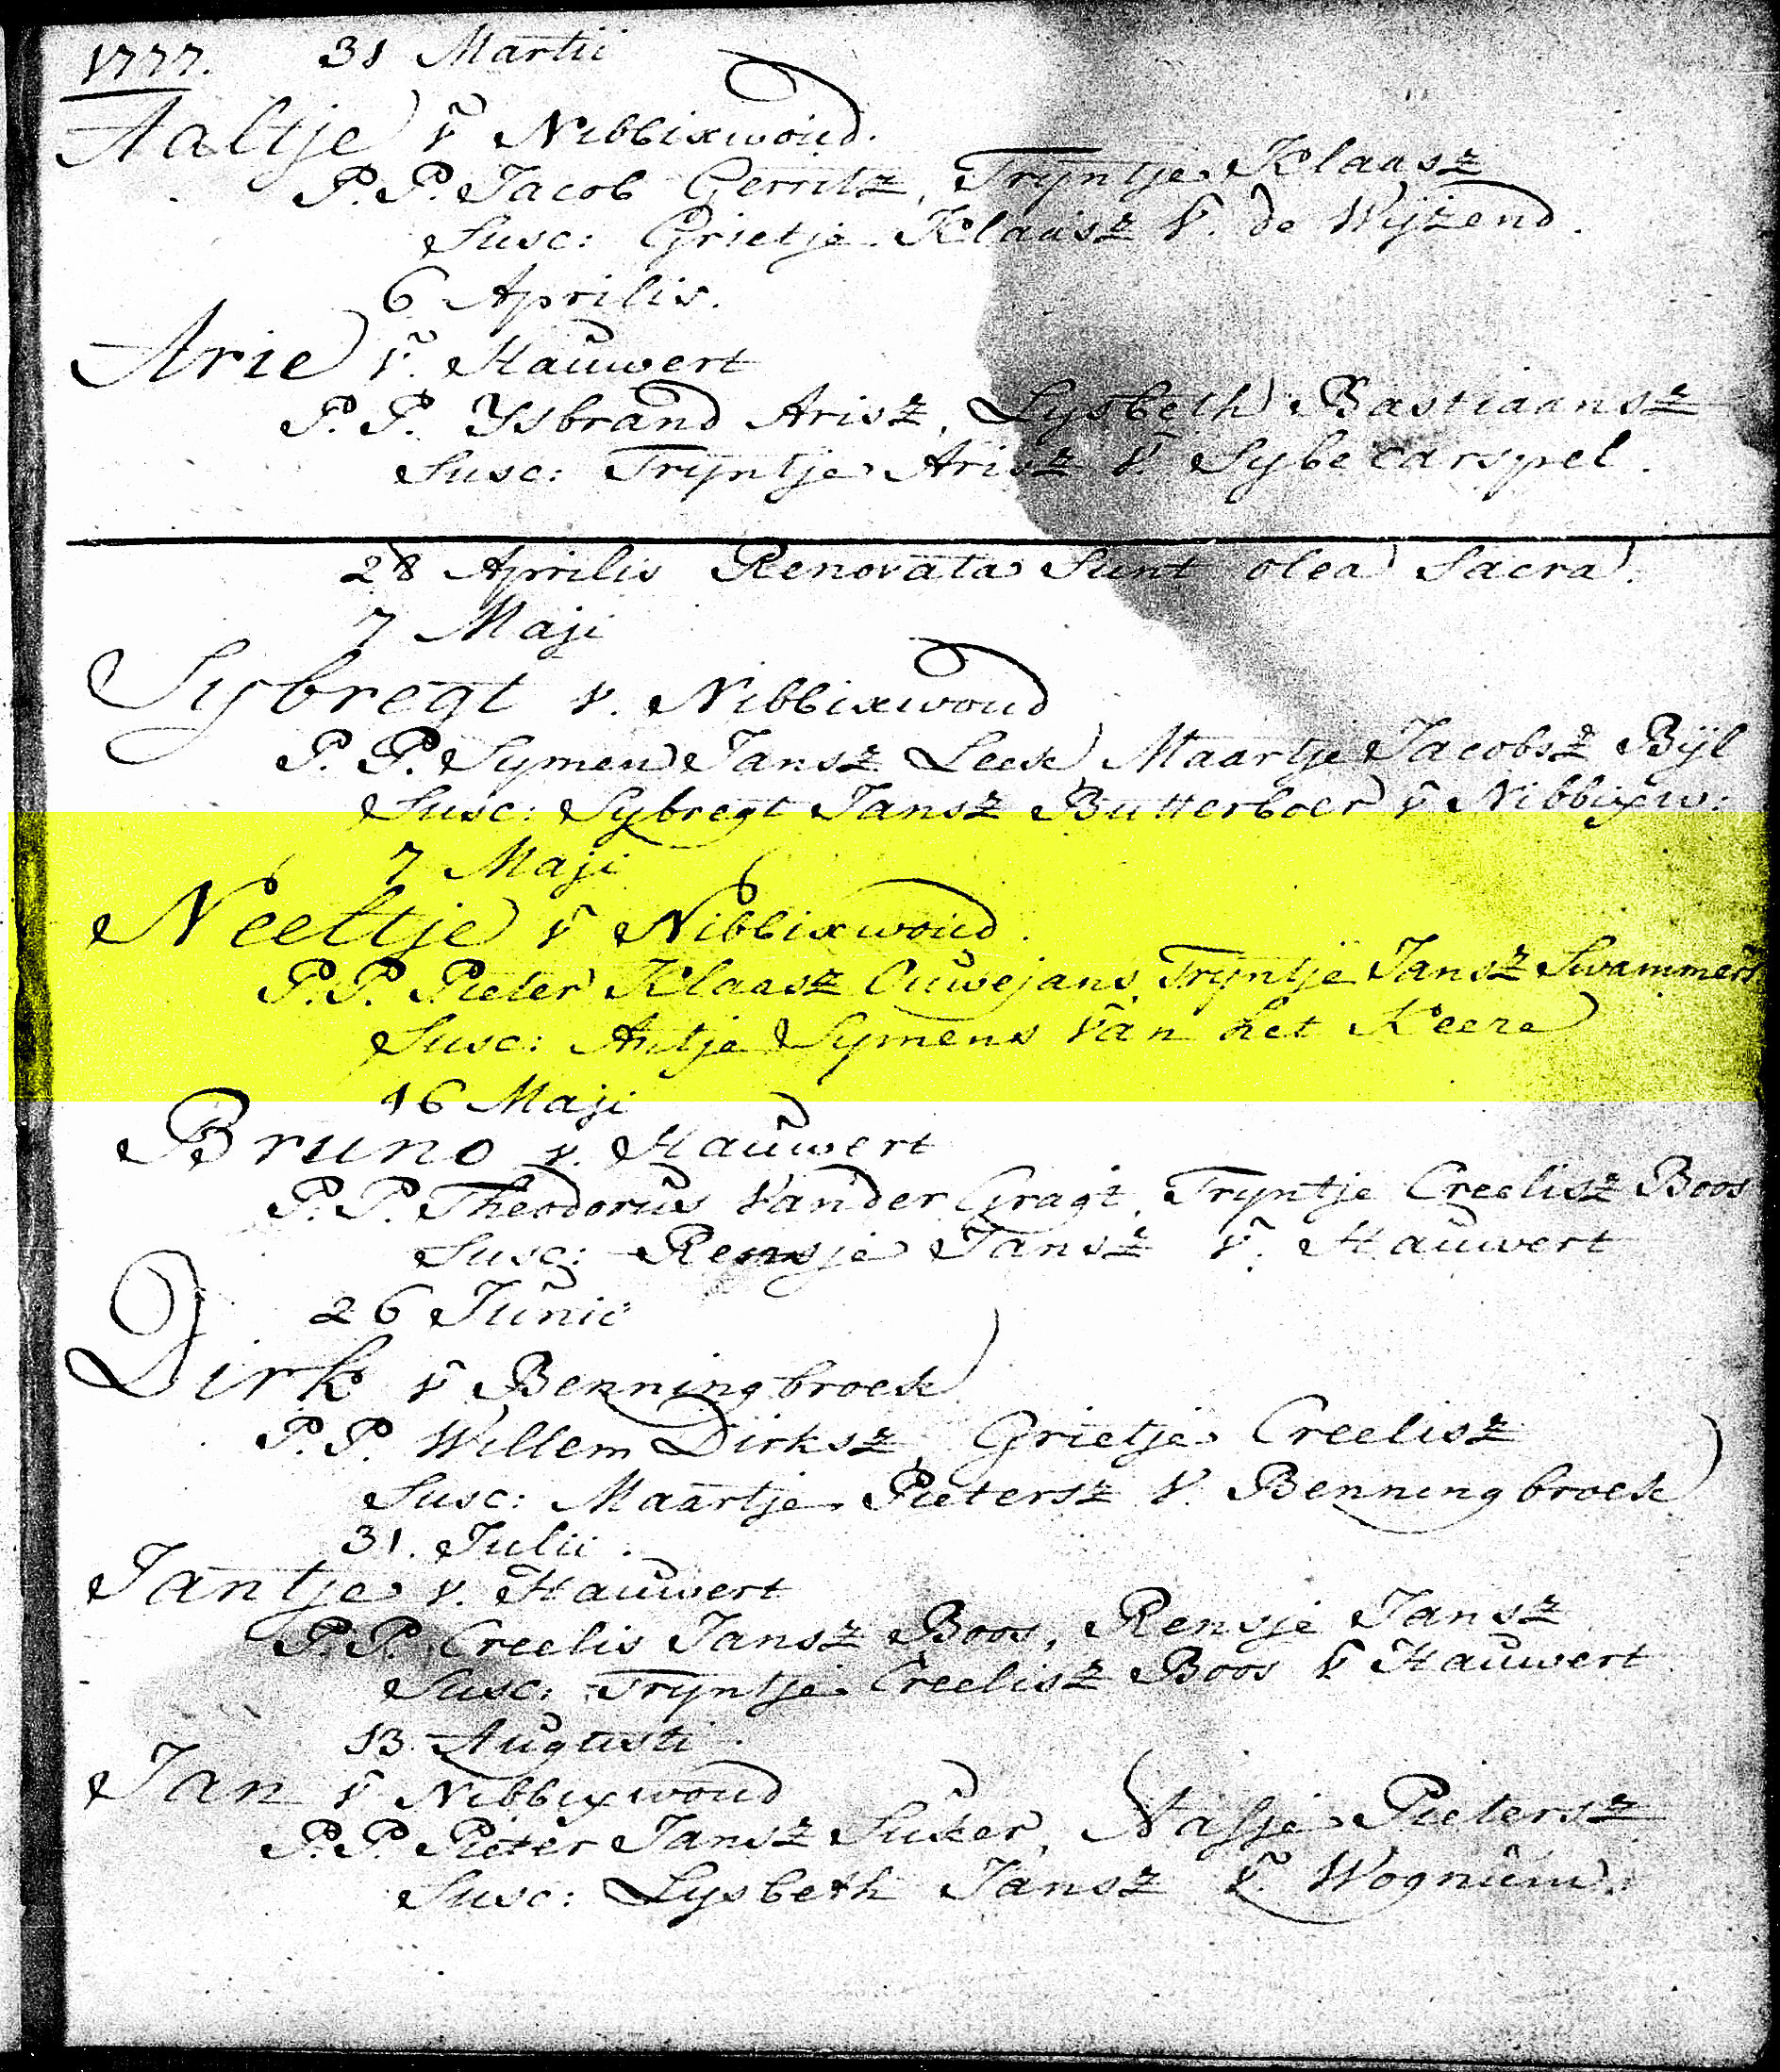 1777. 31 Martii
Aaltje v̄ Nibbixwoud.
P. P. Jacob Gerritz, Tryntje Klaasz
Susc: Grietje Klaasz v. de Wijzend.
6 Aprilis.
Arie v̄. Hauwert
P. P. Ysbrand Arisz, Lysbeth Bastiaansz
Susc: Tryntje Arisz v̄ Sybecarspel.
28 Aprilis Renovata Sunt olea Sacra.
7 Maji
Sybregt v. Nibbixwoud
P. P. Symen Jansz Leek Maartje Jacobsz Bÿl
Susc: Sybregt Jansz Butterboer v̄ Nibbixw:
7 Maji
Neeltje v̄ Nibbixwoud.
P. P. Pieter Klaasz Ouwejans, Tryntje Jansz Swammers
Susc: Antje Symens van het Keere
16 Maji
Bruno v. Hauwert
P. P. Theodorus Vander Gragt, Tryntje Creelisz Boos
Susc: Rensje Jansz v̄. Hauwert
26 Junii
Dirk v̄ Benningbroek
P. P. Willem Dirksz, Grietje Creelisz
Susc: Maartje Pietersz v. Benningbroek
31. Julii.
Jantje v. Hauwert
P. P. Creelis Jansz Boos, Rensje Jansz
Susc: Tryntje Creelisz Boos v Hauwert
13. Augusti.
Jan v̄ Nibbixwoud
P. P. Pieter Jansz Suker, Aafje Pietersz
Susc: Lysbeth Jansz v̄. Wognum.